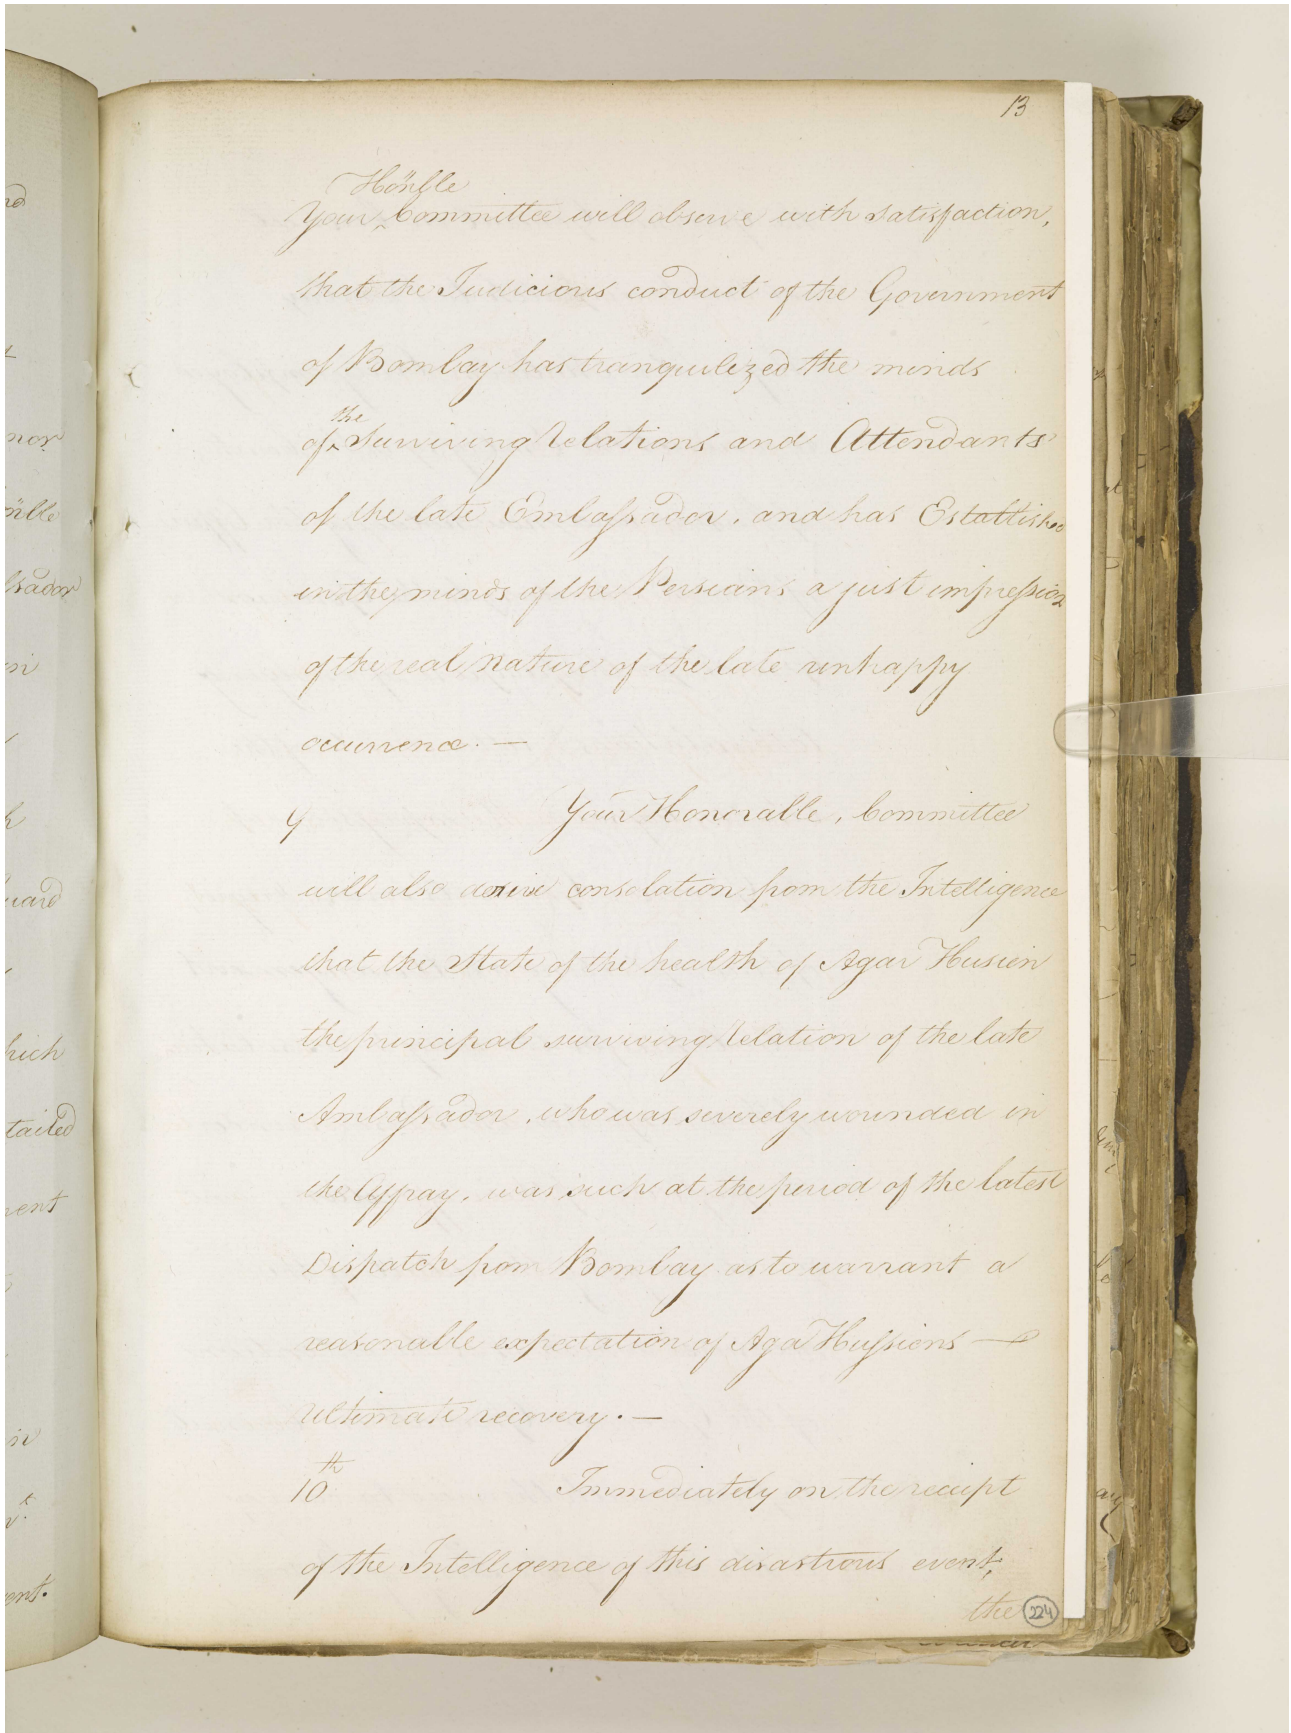 13
Hon̈ble
Your ^ Committee will observe with satisfaction,
that the Judicious conduct of the Government
of Bombay has tranquilized the minds
the
of ^ Surviving relations and Attendants
of the late Embaſsador, and has Established
in the minds of the Persians a just impreſsion
of the real nature of the late unhappy
occurrence. —
9 Your Honorable, Committee
will also derive consolation from the Intelligence
that the State of the health of Agar Husien
the principal surviving relation of the late
Ambaſsador, who was severely wounded in
the Affray, was such at the period of the latest
Dispatch from Bombay as to warrant a
reasonable expectation of Aga Huſsiens —
ultimate recovery. —
10th Immediately on the receipt
of the Intelligence of this disastrous event,
the
224
nor
n̈ble
ſsador
in
uard
hich
tailed
ment
in
ent.